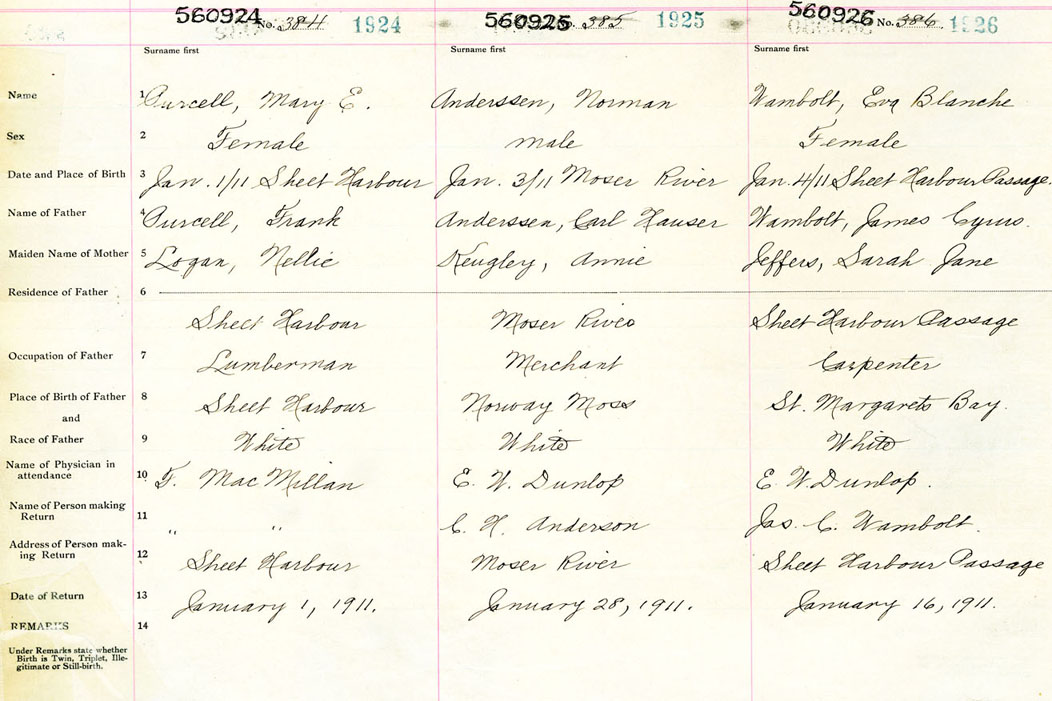 560924 No. 384 1924 560925 385 1925 560926 No. 386 1926
Surname first Surname first Surname first
Name 1 Purcell, Mary E. Anderssen, Norman Wambolt, Eva Blanche
Sex 2 Female male Female
Date and Place of Birth 3 Jan. 1/11 Sheet Harbour Jan. 3/11 Moser River Jan. 4/11 Sheet Harbour Passage.
Name of Father 4 Purcell, Frank Anderssen, Carl Hauser Wambolt, James Cyrus.
Maiden Name of Mother 5 Logan, Nellie Annie Jeffers, Sarah Jane
Residence of Father 6
Sheet Harbour Moser River Sheet Harbour Passage
Occupation of Father 7 Lumberman Merchant Carpenter
Place of Birth of Father 8 Sheet Harbour Norway Moss St. Margarets Bay.
and
Race of Father 9 White White White
Name of Physician in
attendance 10 F. MacMillan E. W. Dunlop E. W. Dunlop.
Name of Person making
Return 11 " " C. H. Anderson Jas. C. Wambolt.
Address of Person mak-
ing Return 12 Sheet Harbour Moser River Sheet Harbour Passage
Date of Return 13 January 1, 1911. January 28, 1911. January 16, 1911.
REMARKS 14
Under Remarks state whether
Birth is Twin, Triplet, Ille-
gitimate or Still-birth.